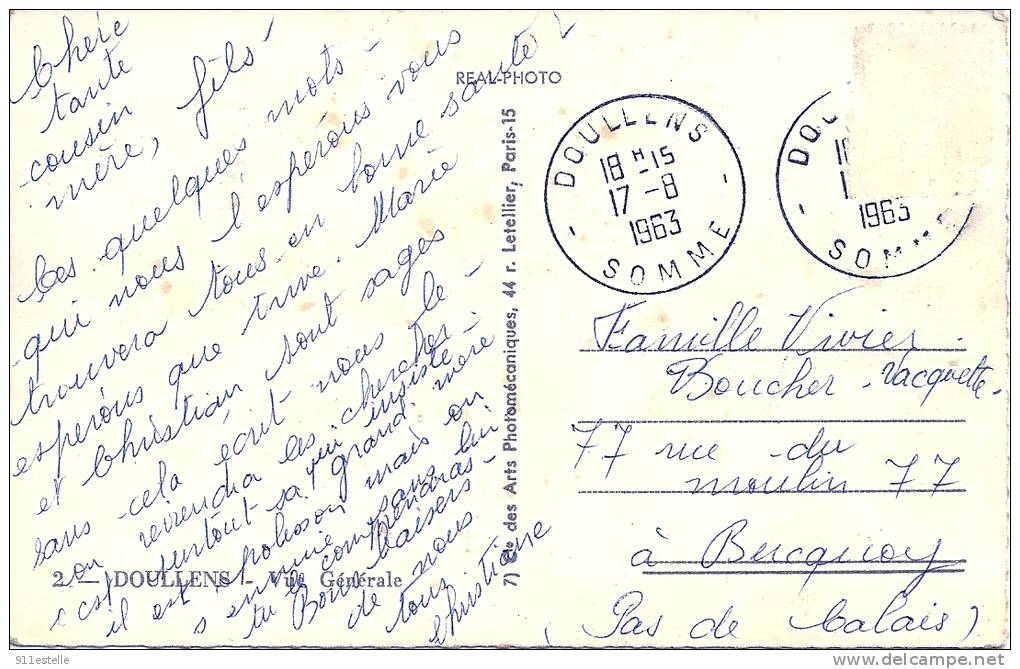 Chère
tante
cousin
mère, fils
Ces quelques mots
qui nous l'esperons vous
trouvera tous en bonne santé
esperons que Marie
et Christian sont sages
sans cela ecrit nous le
on reviendra les chercher
c'est surtout sa grand mère
qui insiste
il est polisson mais on
s ennuie sans lui
tu le comprendras
Bons baisers
de nous
tous
Christiane
2 — DOULLENS - Vue Générale
REAL-PHOTO
7) Cie des Arts Photomécaniques, 44 r. Letellier, Paris-15
DOULLENS
18 H 15
17 - 8
1963
SOMME
1963
SOMME
Famille Vivier
Boucher - Vacquette
77 rue du
moulin 77
à Bucquoy
(Pas de Calais)
911estelle
delcampe.net